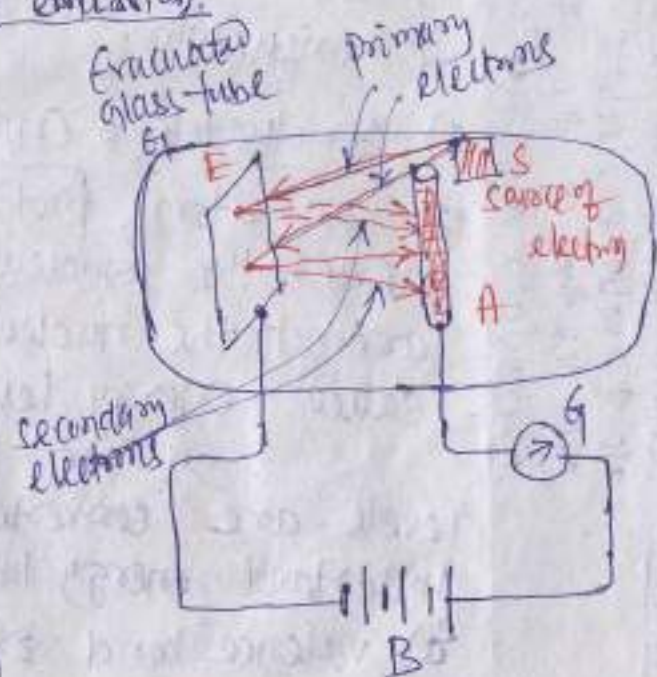 emission.
Evacuated
glass-tube
primary
electrons
E
S
source of
electrons
A
secondary
electrons
G
B